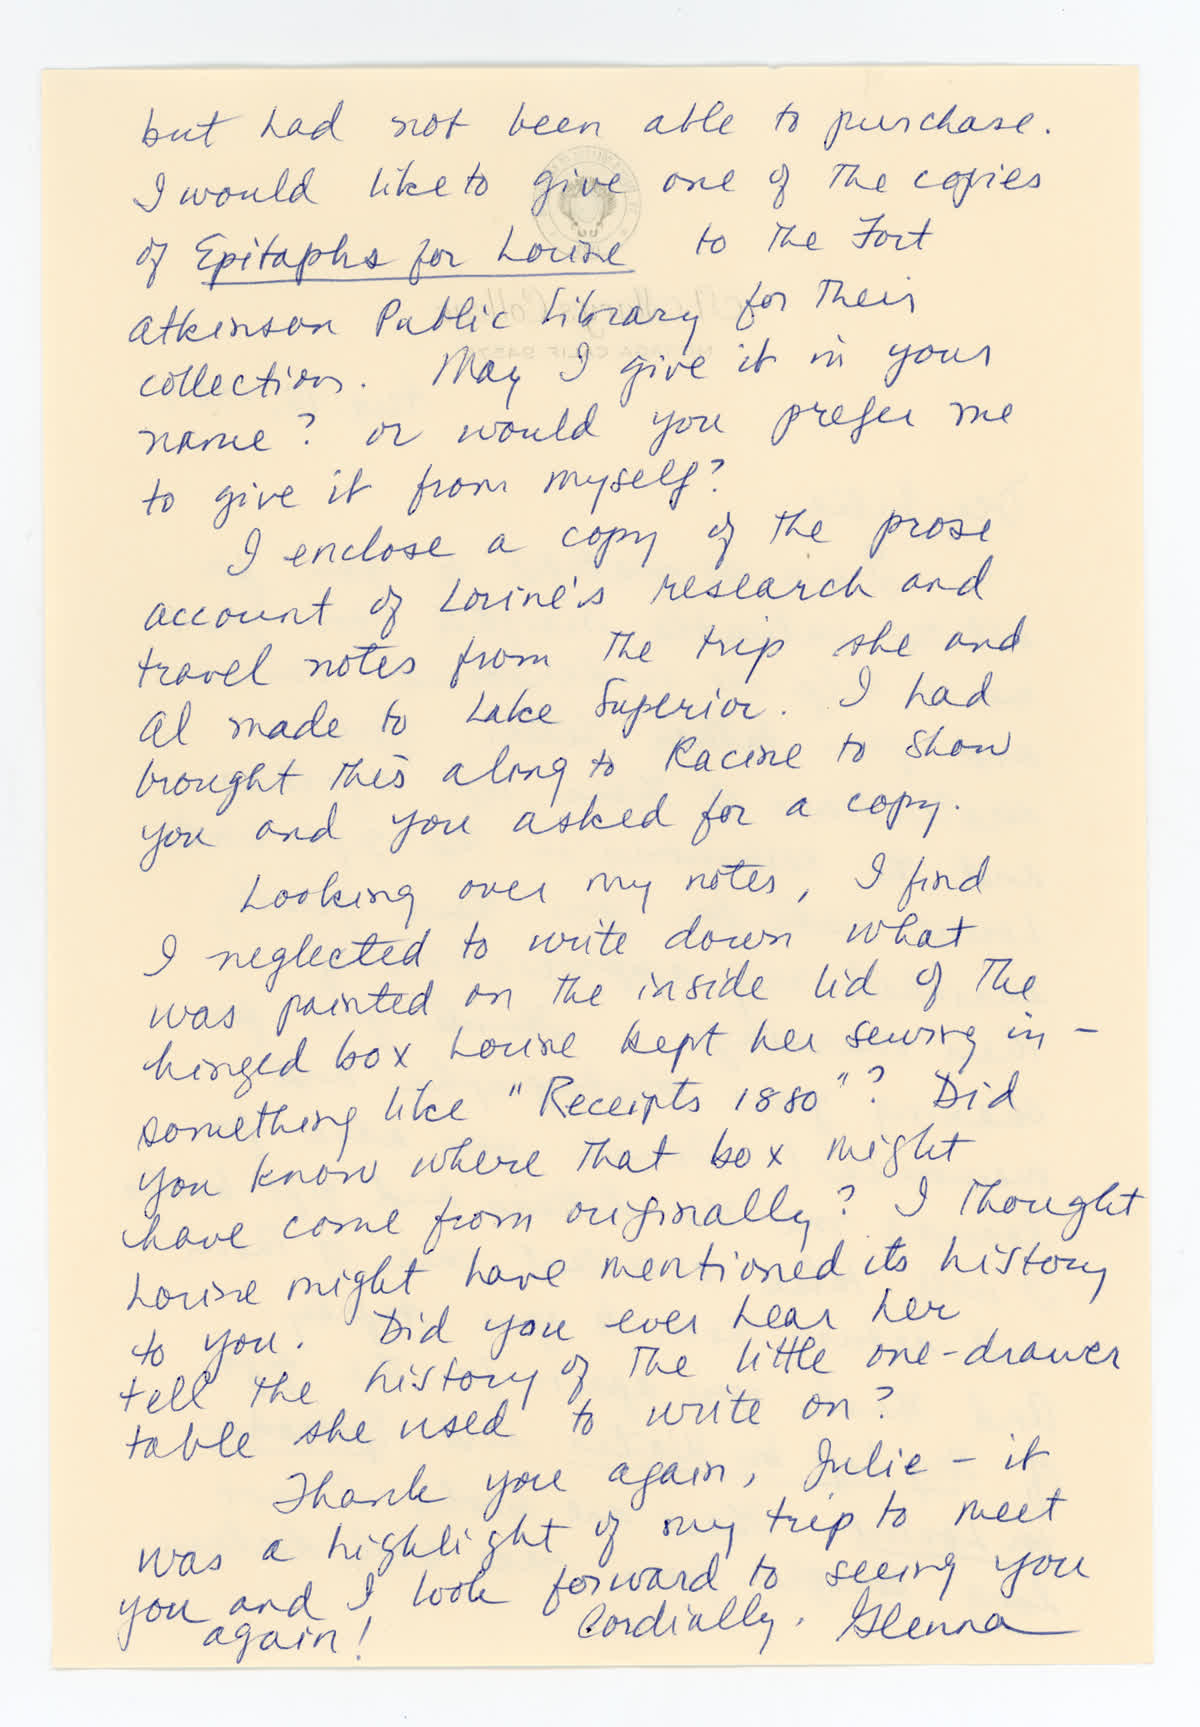 but had not been able to purchase.
I would like to give one of the copies
of Epitaphs for Lorine to the Fort
Atkinson Public Library for their
collection. May I give it in your
name? or would you prefer me
to give it from myself?
I enclose a copy of the prose
account of Lorine's research and
travel notes from the trip she and
Al made to Lake Superior. I had
brought this along to Racine to show
you and you asked for a copy.
Looking over my notes, I find
I neglected to write down what
was painted on the inside lid of the
hinged box Lorine kept her sewing in –
something like "Receipts 1880"? Did
you know where that box might
have come from originally? I thought
Lorine might have mentioned its history
to you. Did you ever hear her
tell the history of the little one-drawer
table she used to write on?
Thank you again, Julie – it
was a highlight of my trip to meet
you and I look forward to seeing you
again! Cordially, Glenna